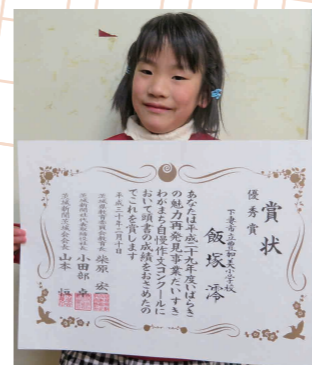 賞状
優秀賞
下妻市立豊加美小学校
飯塚 澪
あなたは平成二十九年度いばらき
の魅力再発見事業だいすき
わがまち自慢作文コンクールに
おいて頭書の成績をおさめたの
でこれを賞します
平成三十年二月十日
茨城県教育委員会教育長 柴原 宏一
茨城新聞社代表取締役社長 小田部 卓
茨城新聞茨城会会長 山本 恒